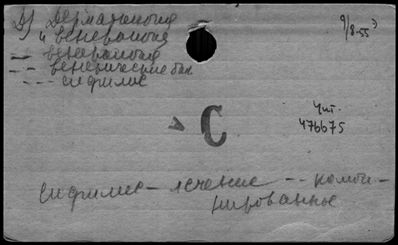 Д) Дерматология
и венерология
-- венерология
-- венерические бол.
--- сифилис
9/8-55
С
Чит.
476675
Сифилис - лечение -- комби-
нированное